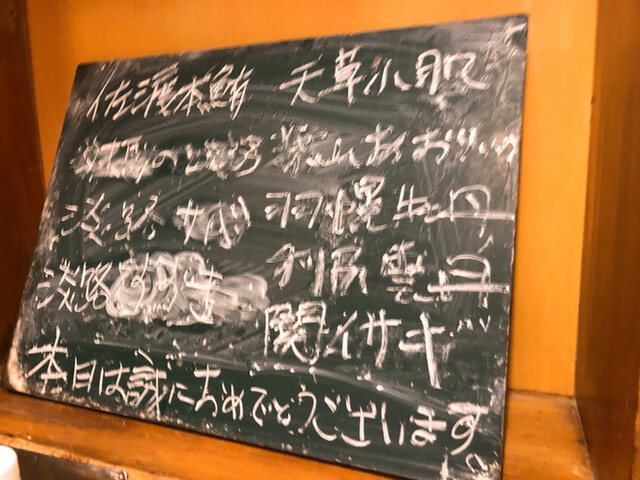 佐渡本鮪 天草小肌
葉山あおりいか
淡路 羽幌牡丹
淡路 利尻雲丹
関イサキ
本日は誠におめでとうございます。